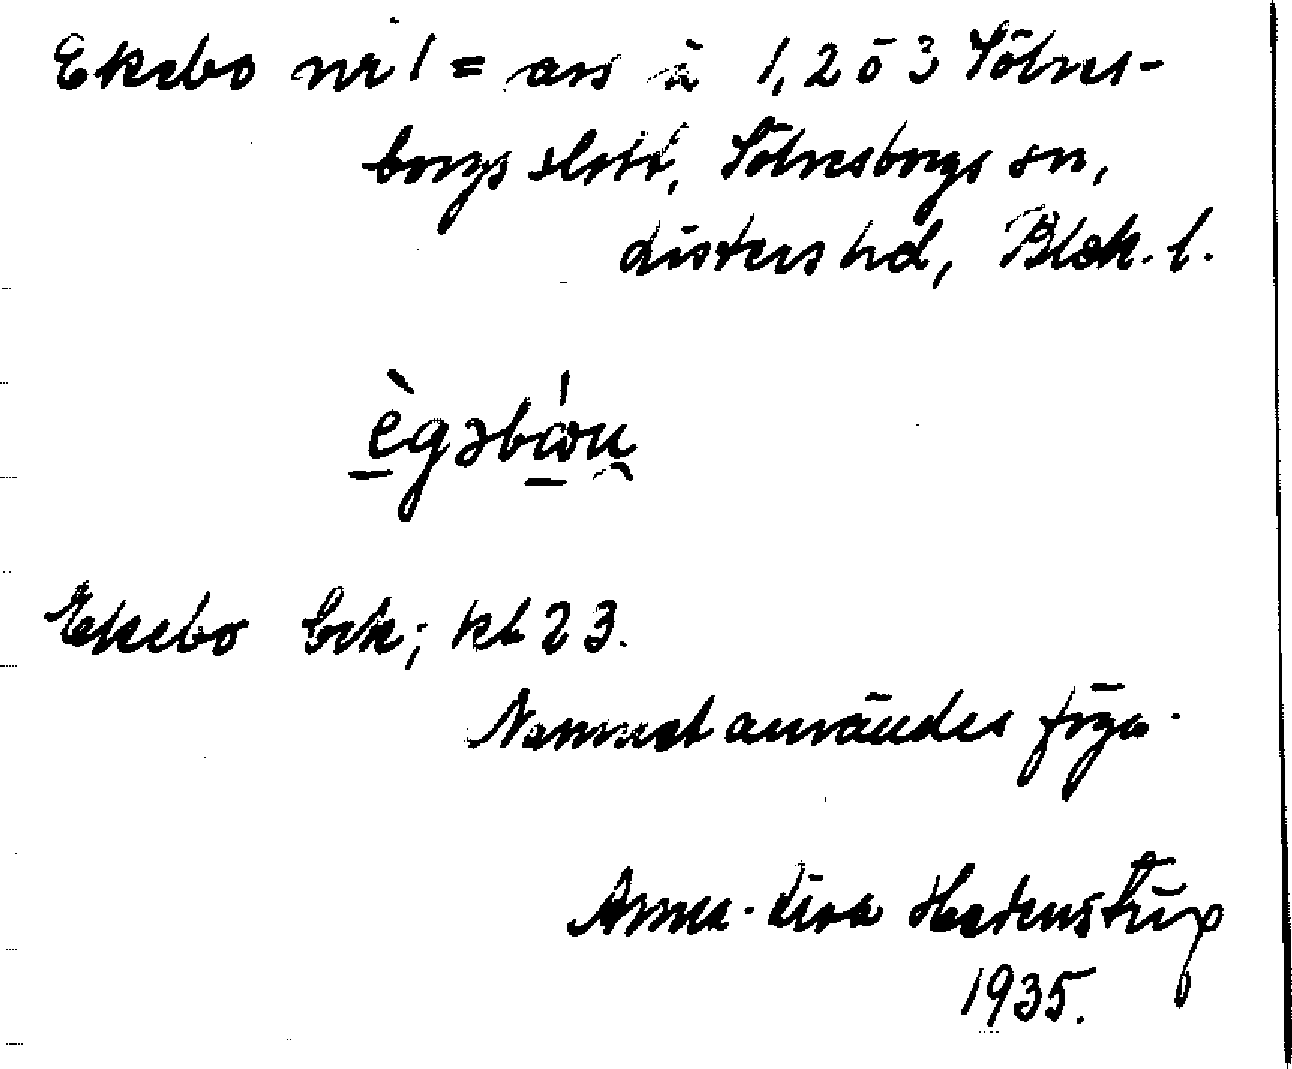 Ekebo nr 1 = avs å 1, 2 o 3 Sölves-
borgs slott, Sölvesborgs sn,
Listers hd, Blek. l.
ègəbɷ́u̯
Ekebo Gek; kbl 23.
Namnet användes föga.
Anna-Lisa Hedenstrüp
1935.